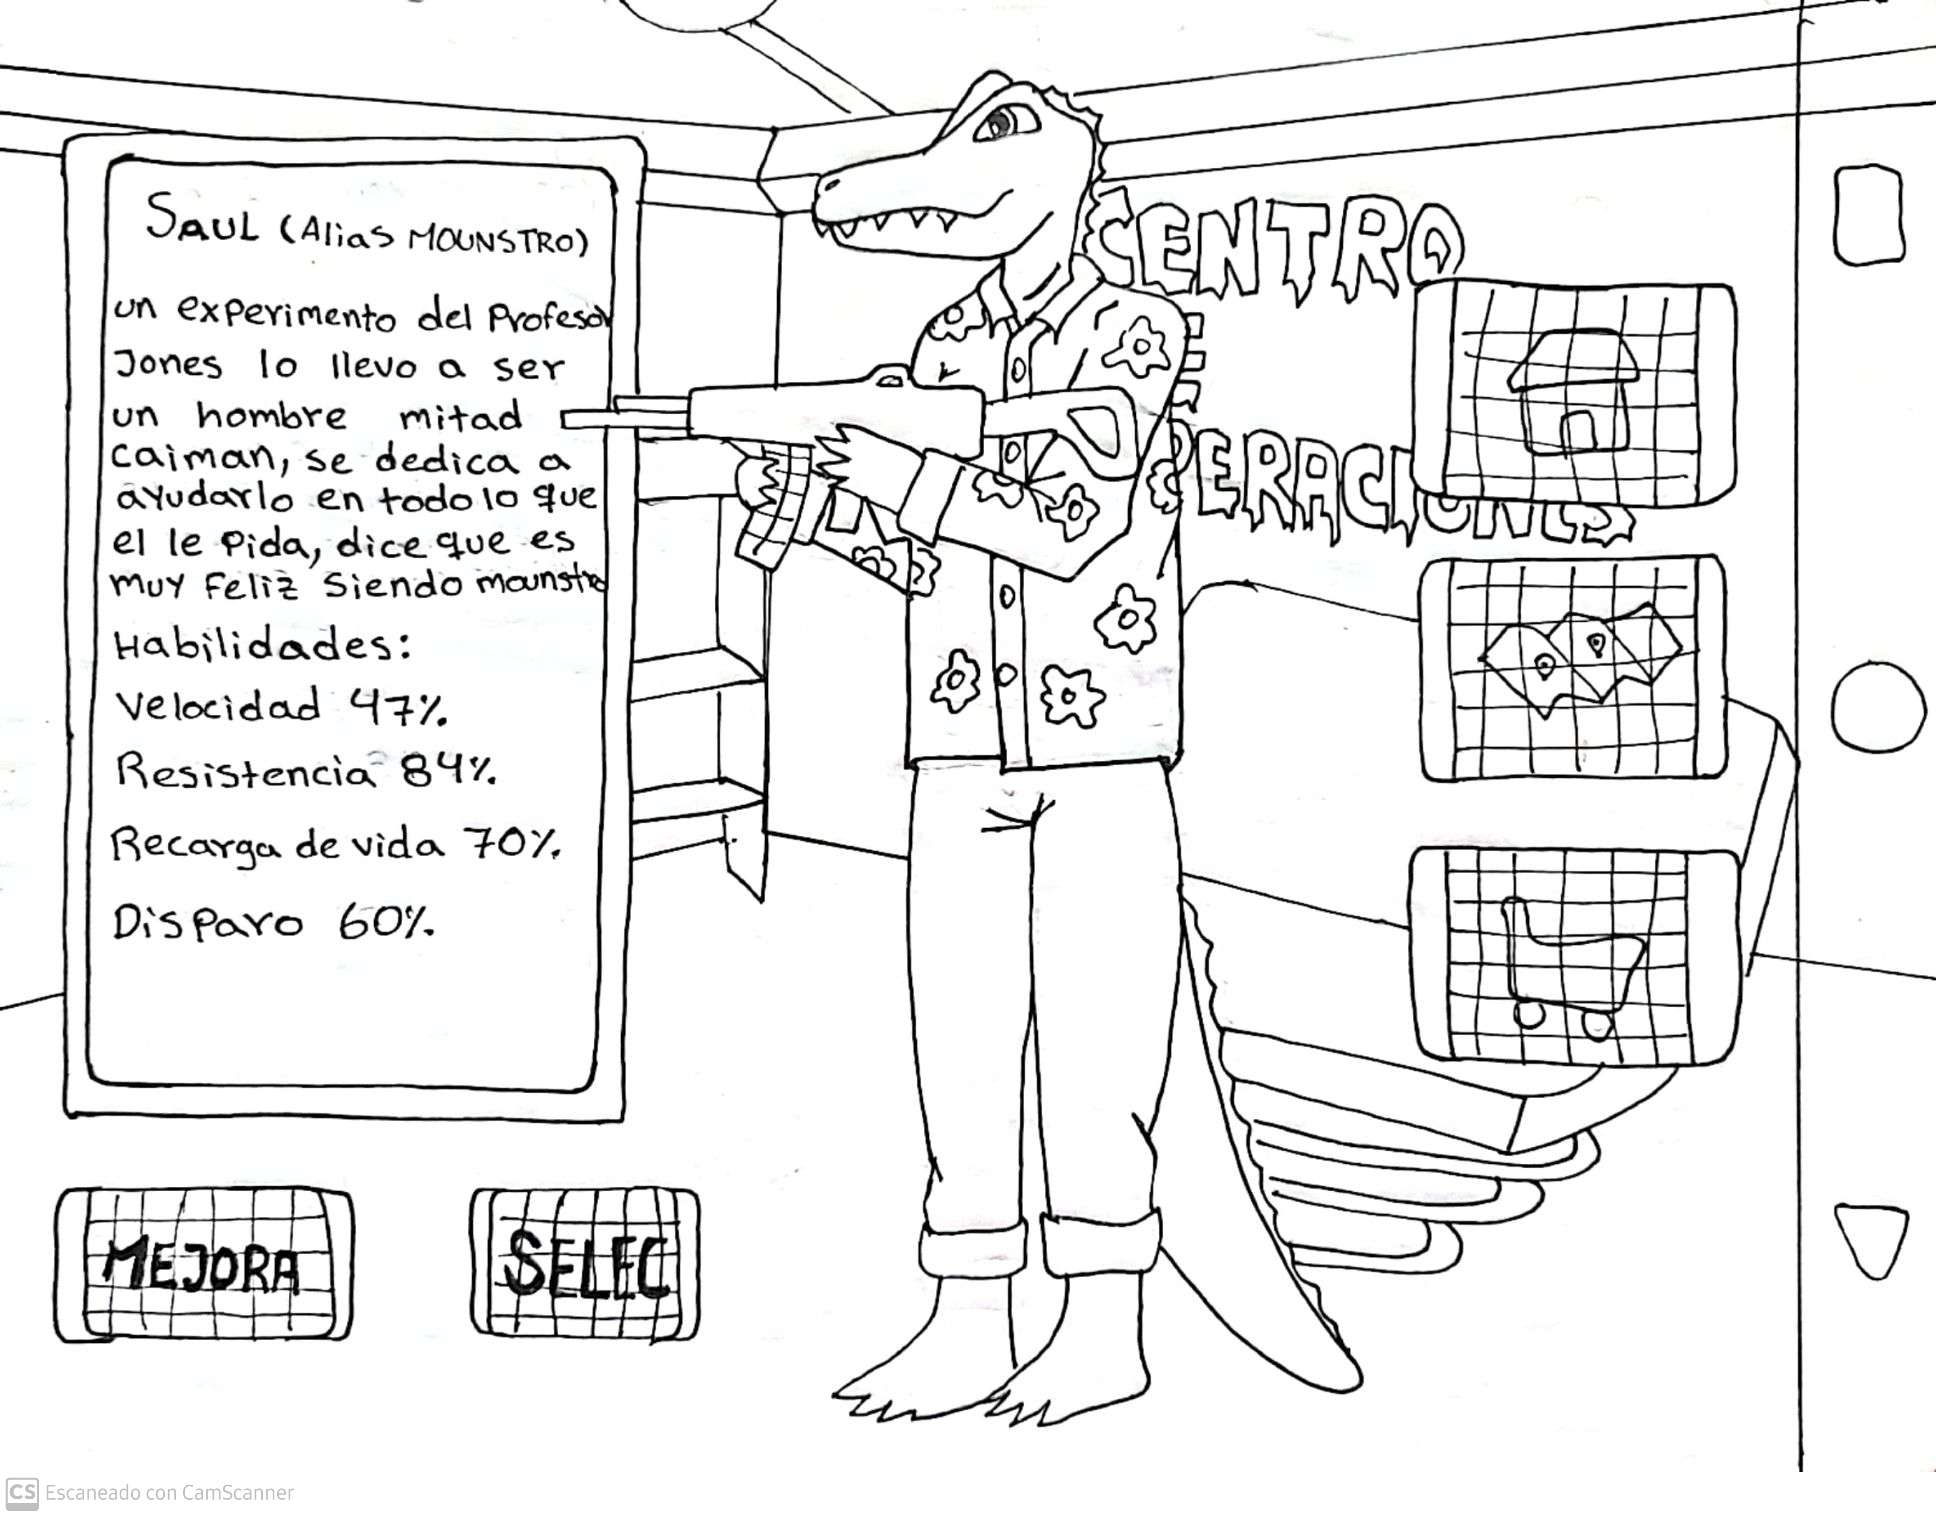 SAUL (Alias MOUNSTRO)
un experimento del Profesor
Jones lo llevo a ser
un hombre mitad
caiman, se dedica a
ayudarlo en todo lo que
el le Pida, dice que es
muy Feliz Siendo mounstro
Habilidades:
Velocidad 47%
Resistencia 84%
Recarga de vida 70%
Disparo 60%
CENTRO
E
PERACIONES
MEJORA
SELEC
CS Escaneado con CamScanner